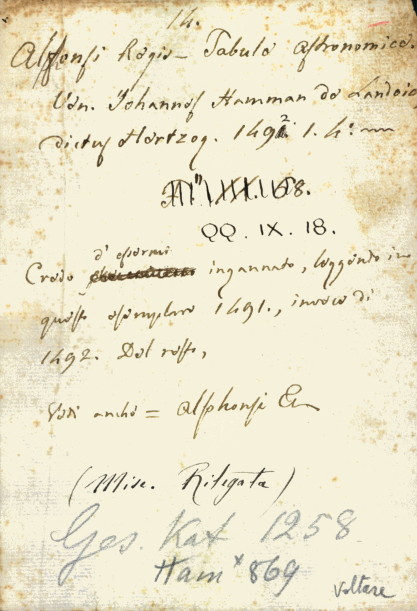 14.
Alfonsi Regis – Tabule astronomice.
Ven. Johannes Hamman de Landoia
dictus Hertzog. 1492. 1. 4:
QQ. IX. 18.
d'essermi
Credo ingannato, leggendo in
questo esemplare 1491., invece di
1492. Del resto,
Vedi anche = Alphonsi
(Misc. Rilegata)
Ges. Kat 1258
Ham * 869
Voltare